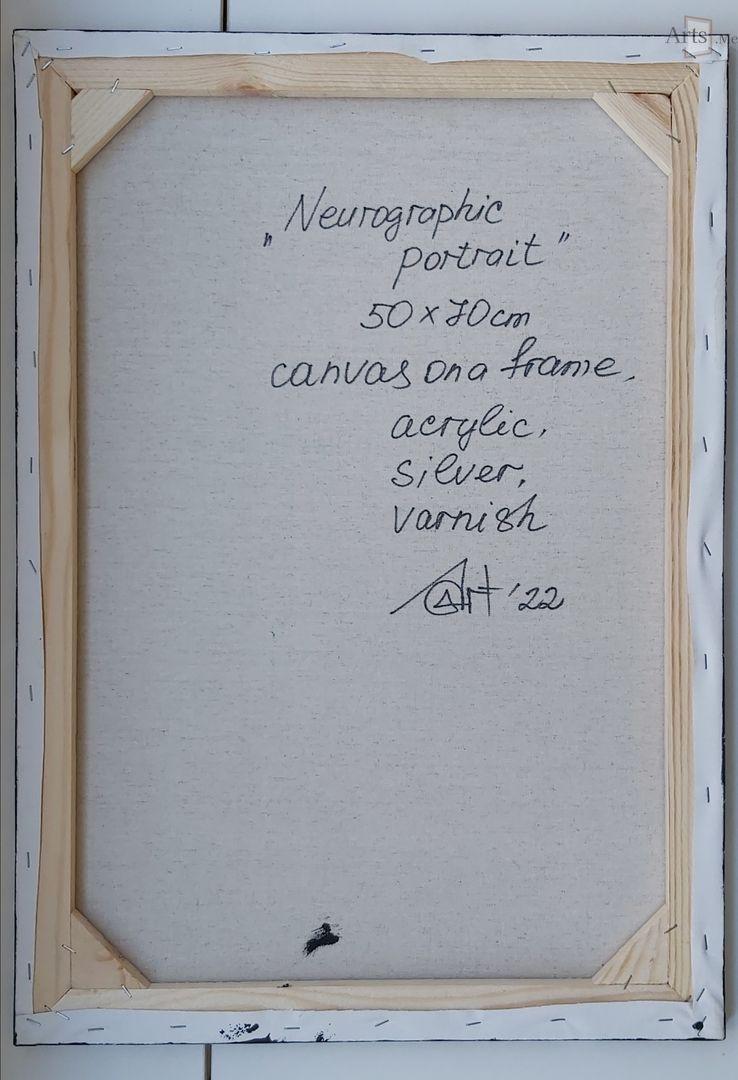 Arts.Me
„Neurographic
portrait"
50x70cm
canvas on a frame,
acrylic,
silver,
varnish
Art '22